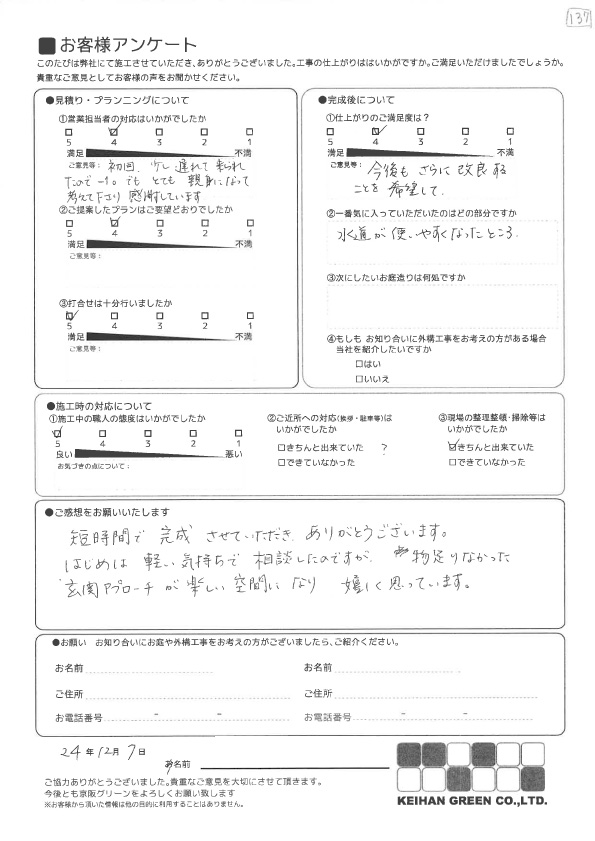 137
■お客様アンケート
このたびは弊社にて施工させていただき、ありがとうございました。工事の仕上がりははいかがですか。ご満足いただけましたでしょうか。
貴重なご意見としてお客様の声をお聞かせください。
●見積り・プランニングについて
①営業担当者の対応はいかがでしたか
5 4 3 2 1
満足 不満
ご意見等： 初回、少し遅れて来られ
たので-1。でも とても 親身になって
考えて下さり 感謝しています
②ご提案したプランはご要望どおりでしたか
5 4 3 2 1
満足 不満
ご意見等：
③打合せは十分行いましたか
5 4 3 2 1
満足 不満
ご意見等：
●完成後について
①仕上がりのご満足度は？
5 4 3 2 1
満足 不満
ご意見等： 今後も さらに 改良する
ことを 希望して.
②一番気に入っていただいたのはどの部分ですか
水道が 使いやすくなったところ.
③次にしたいお庭造りは何処ですか
④もしも お知り合いに外構工事をお考えの方がある場合
当社を紹介したいですか
□はい
□いいえ
●施工時の対応について
①施工中の職人の態度はいかがでしたか
5 4 3 2 1
良い 悪い
お気づきの点について：
②ご近所への対応(挨拶・駐車等)は
いかがでしたか
□きちんと出来ていた ？
□できていなかった
③現場の整理整頓・掃除等は
いかがでしたか
☑きちんと出来ていた
□できていなかった
●ご感想をお願いいたします
短時間で 完成 させていただき ありがとうございます。
はじめは 軽い気持ちで 相談したのですが、 物足りなかった
玄関アプローチが 楽しい 空間に なり 嬉しく思っています。
●お願い お知り合いにお庭や外構工事をお考えの方がございましたら、ご紹介ください。
お名前 お名前
ご住所 ご住所
お電話番号 - - お電話番号 - -
24年12月7日
お名前
ご協力ありがとうございました。貴重なご意見を大切にさせて頂きます。
今後とも京阪グリーンをよろしくお願い致します
※お客様から頂いた情報は他の目的に利用することはありません。
KEIHAN GREEN CO.,LTD.